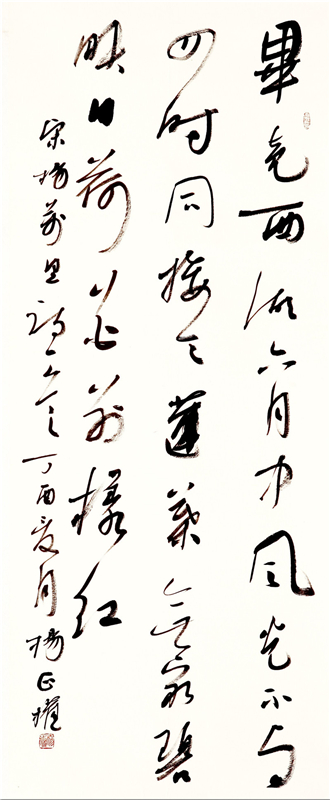 畢竟西湖六月中風光不與
四時同接天蓮葉無窮碧
映日荷花别樣紅
宋楊萬里詩一首丁酉夏月楊正